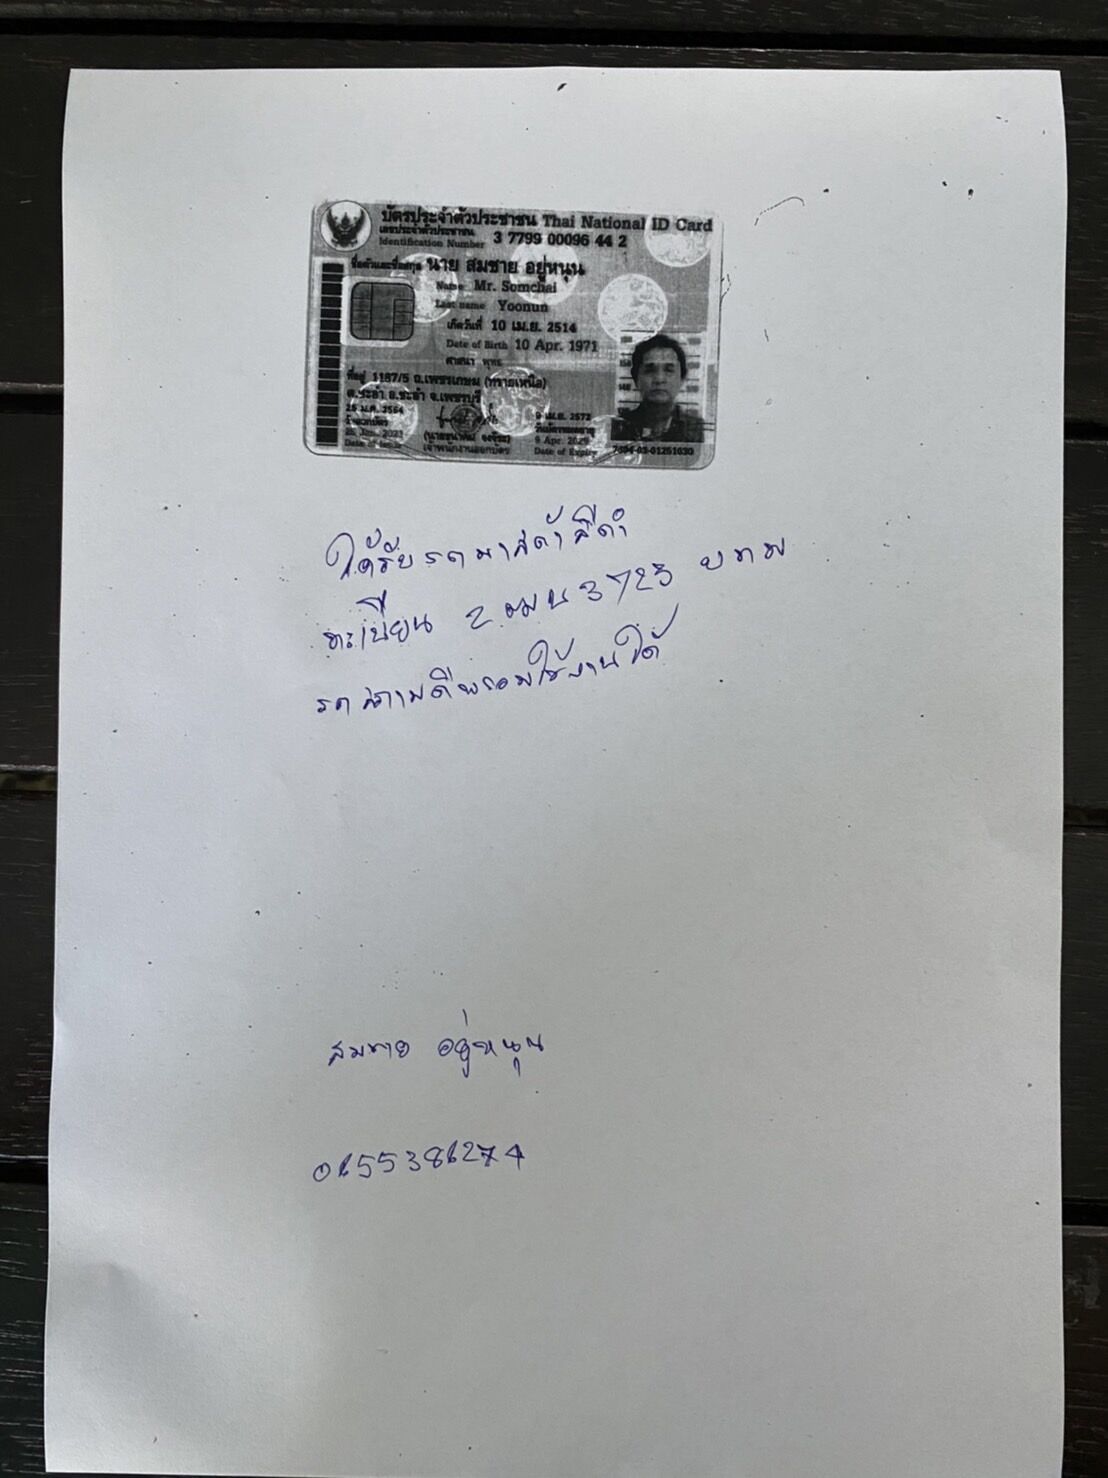 บัตรประจำตัวประชาชน Thai National ID Card
เลขประจำตัวประชาชน
Identification Number 3 7799 00096 44 2
ชื่อตัวและชื่อสกุล นาย สมชาย อยู่หนุน
Name Mr. Somchai
Last name Yoonun
เกิดวันที่ 10 เม.ย. 2514
Date of Birth 10 Apr. 1971
ศาสนา พุทธ
ที่อยู่ 1187/5 ถ.เพชรเกษม (ทรายเหนือ)
ต.ชะอำ อ.ชะอำ จ.เพชรบุรี
25 ม.ค. 2564
วันออกบัตร
25 Jan. 2021
Date of Issue
เจ้าพนักงานออกบัตร
9 เม.ย. 2572
วันบัตรหมดอายุ
9 Apr. 2029
Date of Expiry
7604-03-01251030
ได้รับรถมาสด้าสีดำ
ทะเบียน 2 ฒฆ 3723 บทม
รถสภาพดีพร้อมใช้งานได้
สมชาย อยู่หนุน
0655386274